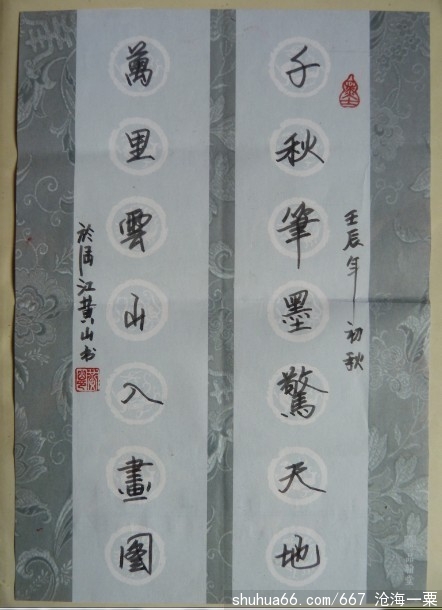 千秋筆墨驚天地
壬辰年初秋
萬里雲山入畫圖
黄山书
shuhua66.com/667 沧海一粟